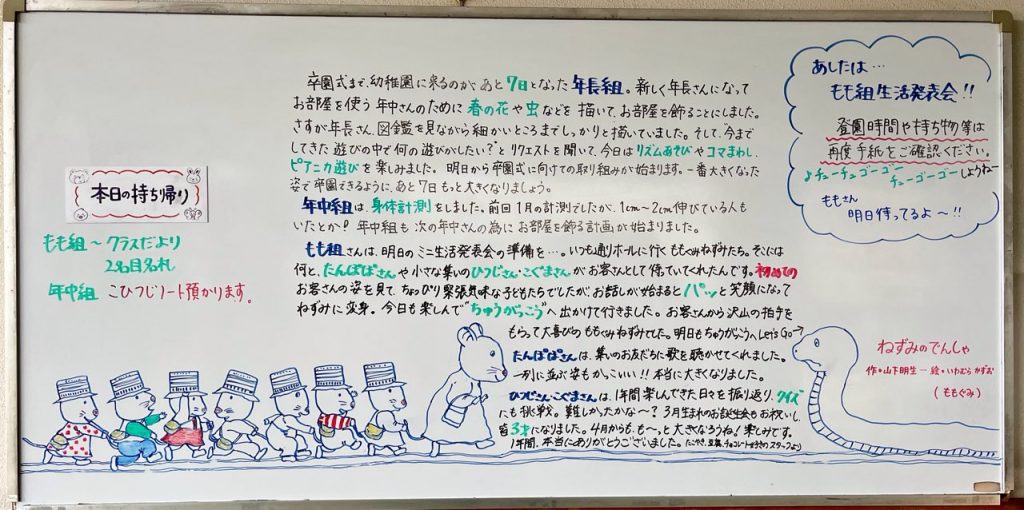 卒園式まで、幼稚園に来るのが、あと7日となった年長組。新しく年長さんになって
お部屋を使う年中さんのために春の花や虫などを描いて、お部屋を飾ることにしました。
さすが年長さん、図鑑を見ながら細かいところまでしっかりと描いていました。そして、今まで
してきた遊びの中で何の遊びがしたい?とリクエストを聞いて、今日はリズムあそびやコマまわし、
ピアニカ遊びを楽しみました。明日から卒園式に向けての取り組みが始まります。一番大きくなった
姿で卒園できるように、あと7日もっと大きくなりましょう。
年中組は、身体計測をしました。前回1月の計測でしたが、1cm〜2cm伸びている人も
いたとか!年中組も次の年中さんの為にお部屋を飾る計画が始まりました。
もも組さんは、明日のミニ生活発表会の準備を…。いつも通りホールに行くももぐみねずみたち。そこには
何と、たんぽぽさんや小さな集いのひつじさん・こぐまさんがお客さんとして待っていてくれたんです。初めての
お客さんの姿を見て、ちょっぴり緊張気味な子どもたちでしたが、お話しが始まるとパッと笑顔になって
ねずみに変身。今日も楽しんで"ちゅうがっこう"へ出かけて行きました。お客さんから沢山の拍手を
もらって大喜びのももぐみねずみでした。明日もちゅうがっこうへLet's Go→
たんぽぽさんは、集いのお友だちに歌を聴かせてくれました。
一列に並ぶ姿もかっこいい!!本当に大きくなりました。
ひつじさん・こぐまさんは、1年間楽しんできた日々を振り返り、クイズ
にも挑戦。難しかったかな〜?3月生まれのお誕生会もお祝いし、
皆3才になりました。4月からも、も〜っと大きくなろうね!楽しみです。
1年間、本当にありがとうございました。
本日の持ち帰り
もも組〜クラスだより
2名目名札
年中組 こひつじノート預かります。
あしたは…
もも組生活発表会!!
登園時間や持ち物等は
再度手紙をご確認ください。
♪チューチューゴーゴー
チューゴーゴーしようねー
ももさん
明日待ってるよ〜!!
ねずみのでんしゃ
作・山下明生 絵・いわむらかずお
(ももぐみ)